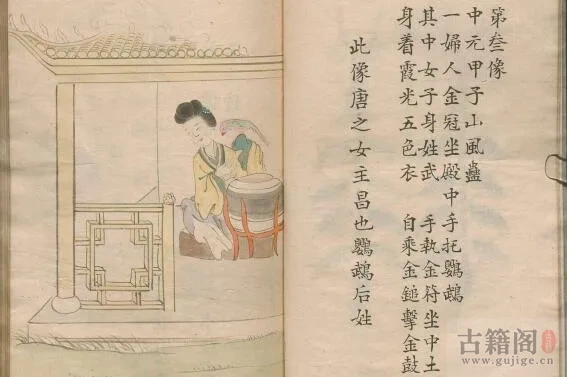 第叁像
中元甲子山風蠱
一婦人金冠坐殿中手托鸚鵡
其中女子身姓武　手執金符坐中土
身着霞光五色衣　自乘金鎚擊金鼓
此像唐之女主昌也鸚鵡后姓
古籍阁
www.gujige.cn